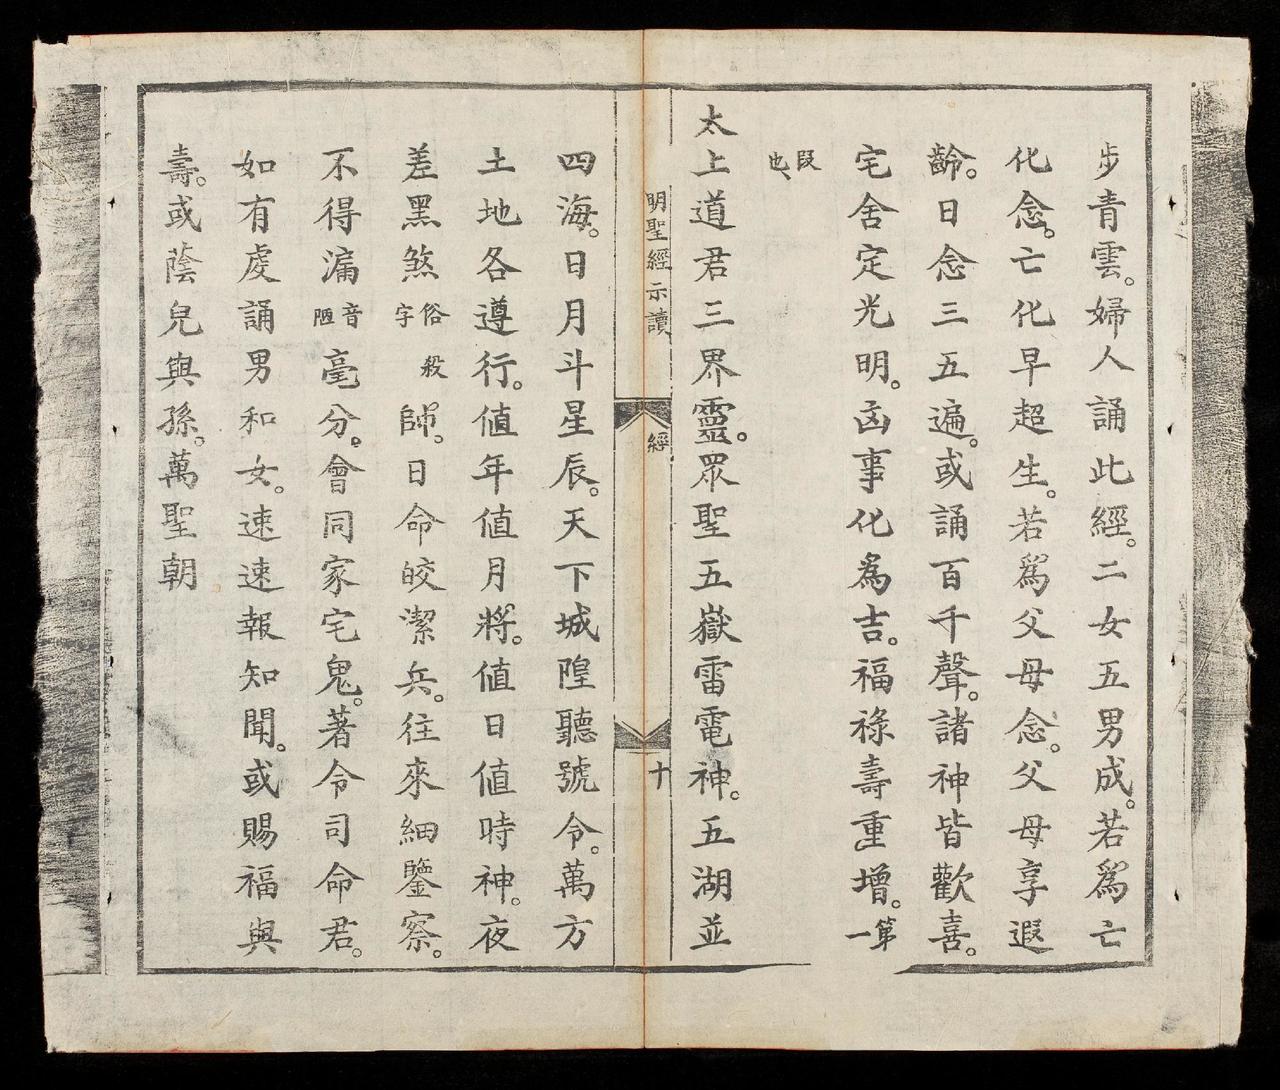 步青雲。婦人誦此經。二女五男成。若爲亡
化念。亡化早超生。若爲父母念。父母享遐
齡。日念三五遍。或誦百千聲。諸神皆歡喜。
宅舍定光明。凶事化為吉。福祿壽重增。第一
段也、
太上道君三界靈。眾聖五嶽雷電神。五湖並
明聖經示讀
經
十
四海。日月斗星辰。天下城隍聽號令。萬方
土地各遵行。值年值月將。值日值時神。夜
差黑煞俗殺字師。日命皎潔兵。往來細鑒察。
不得漏音陋毫分。會同家宅鬼。著令司命君。
如有處誦男和女。速速報知聞。或賜福與
壽。或蔭兒與孫。萬聖朝